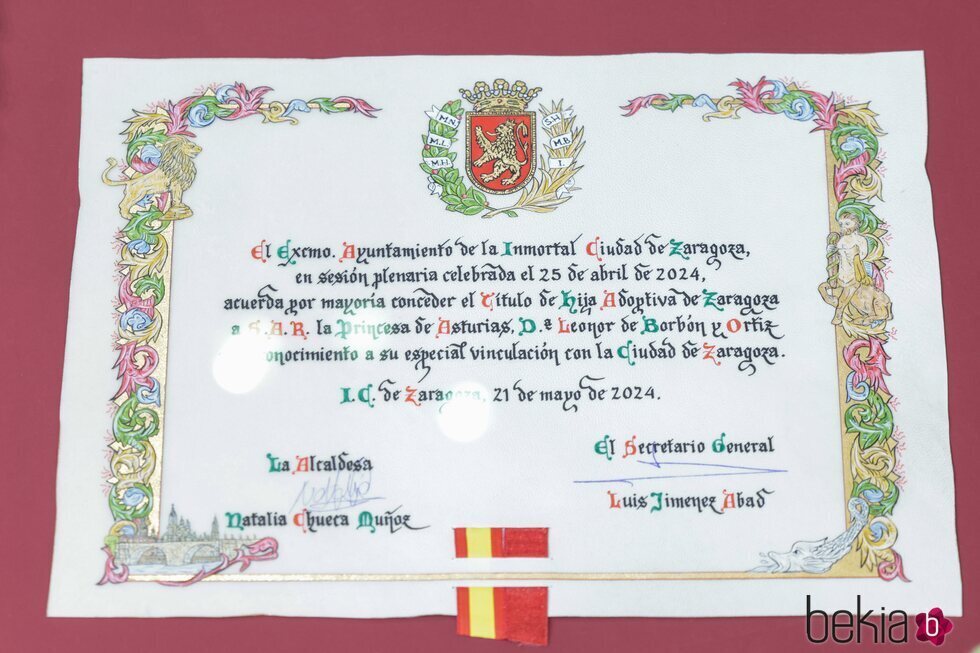 M.N. S.H.
M.L. M.B.
M.H. I.
El Excmo. Ayuntamiento de la Inmortal Ciudad de Zaragoza,
en sesión plenaria celebrada el 25 de abril de 2024,
acuerda por mayoría conceder el Título de Hija Adoptiva de Zaragoza
a S.A.R. la Princesa de Asturias, D.ª Leonor de Borbón y Ortiz
onocimiento a su especial vinculación con la Ciudad de Zaragoza.
I.C. de Zaragoza, 21 de mayo de 2024.
La Alcaldesa
Natalia Chueca Muñoz
El Secretario General
Luis Jimenez Abad
bekia b